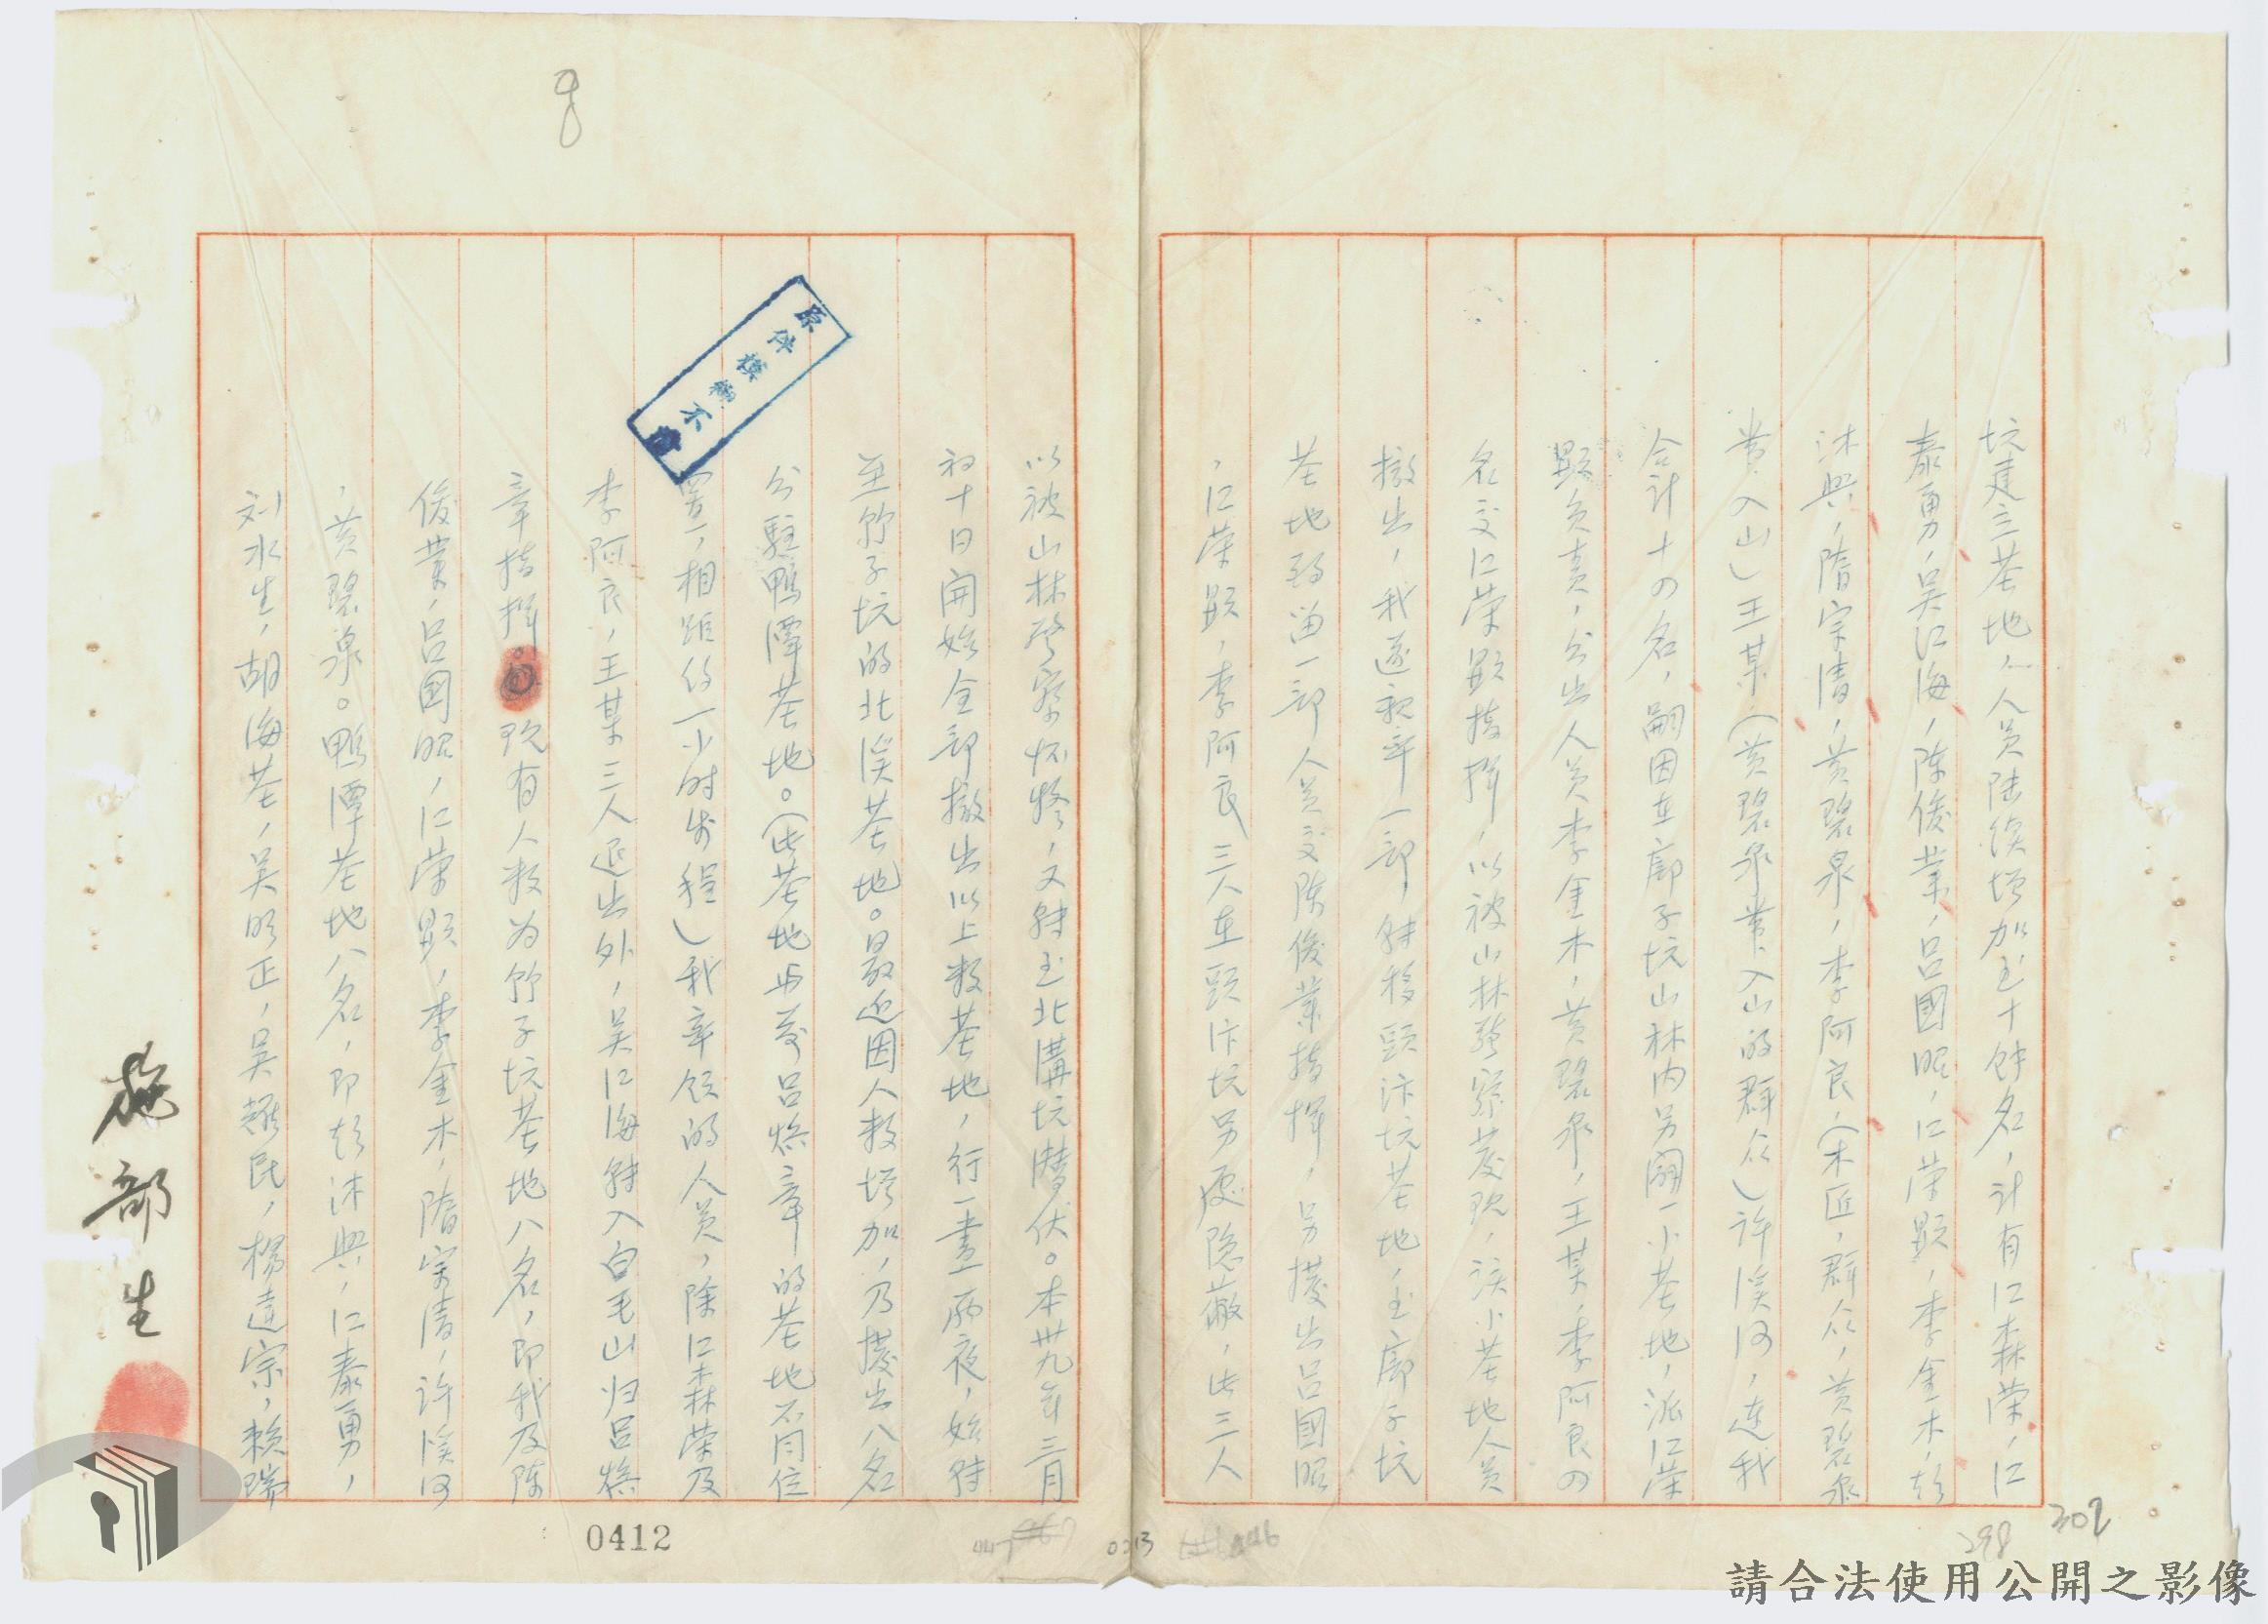 坑建立基地，人員陸續增加至十餘名，計有江森榮，江
泰勇，吳江海，陳俊業，呂國昭，江榮顯，李金木，彭
沐興，隋宗清，黃碧泉，李阿良，（木匠，群众，黃碧泉
帶入山）王某（黃碧泉帶入山的群众）許溪河，連我
合計十四名，嗣因在廍子坑山林內另開一小基地，派江榮
顯負責，分出人員李金木，黃碧泉，王某，李阿良四
名交江榮顯指揮，以被山林警察發現，該小基地人員
撤出，我遂親率一部，轉移頭汴坑基地，至廍子坑
基地酌留一部人員交陳俊業指揮，另撥出呂國昭
，江榮顯，李阿良三人在頭汴坑另處隱蔽，此三人
以被山林警察怀疑，又轉至北溝坑潛伏。本卅九年三月
初十日開始全部撤出以上数基地，行一晝两夜，始轉
至竹子坑的北溪基地。最近因人数增加，乃撥出八名
分駐鴨潭基地。（此基地与前呂煥章的基地不同位
置，相距約一小时步程）我率領的人員，除江森荣及
李阿良，王某三人逃出外，吳江海轉入白毛山归呂煥
章指揮。现有人数为竹子坑基地八名，即我及陳
俊業，呂國昭，江榮顯，李金木，隋宗清，許溪河
，黃碧泉。鴨潭基地八名，即彭沐興，江泰勇，
刘水生，胡海基，吳明正，吳趨民，楊達宗，賴瑞
原件模糊不
施部生
0412
302
298
446
447
請合法使用公開之影像